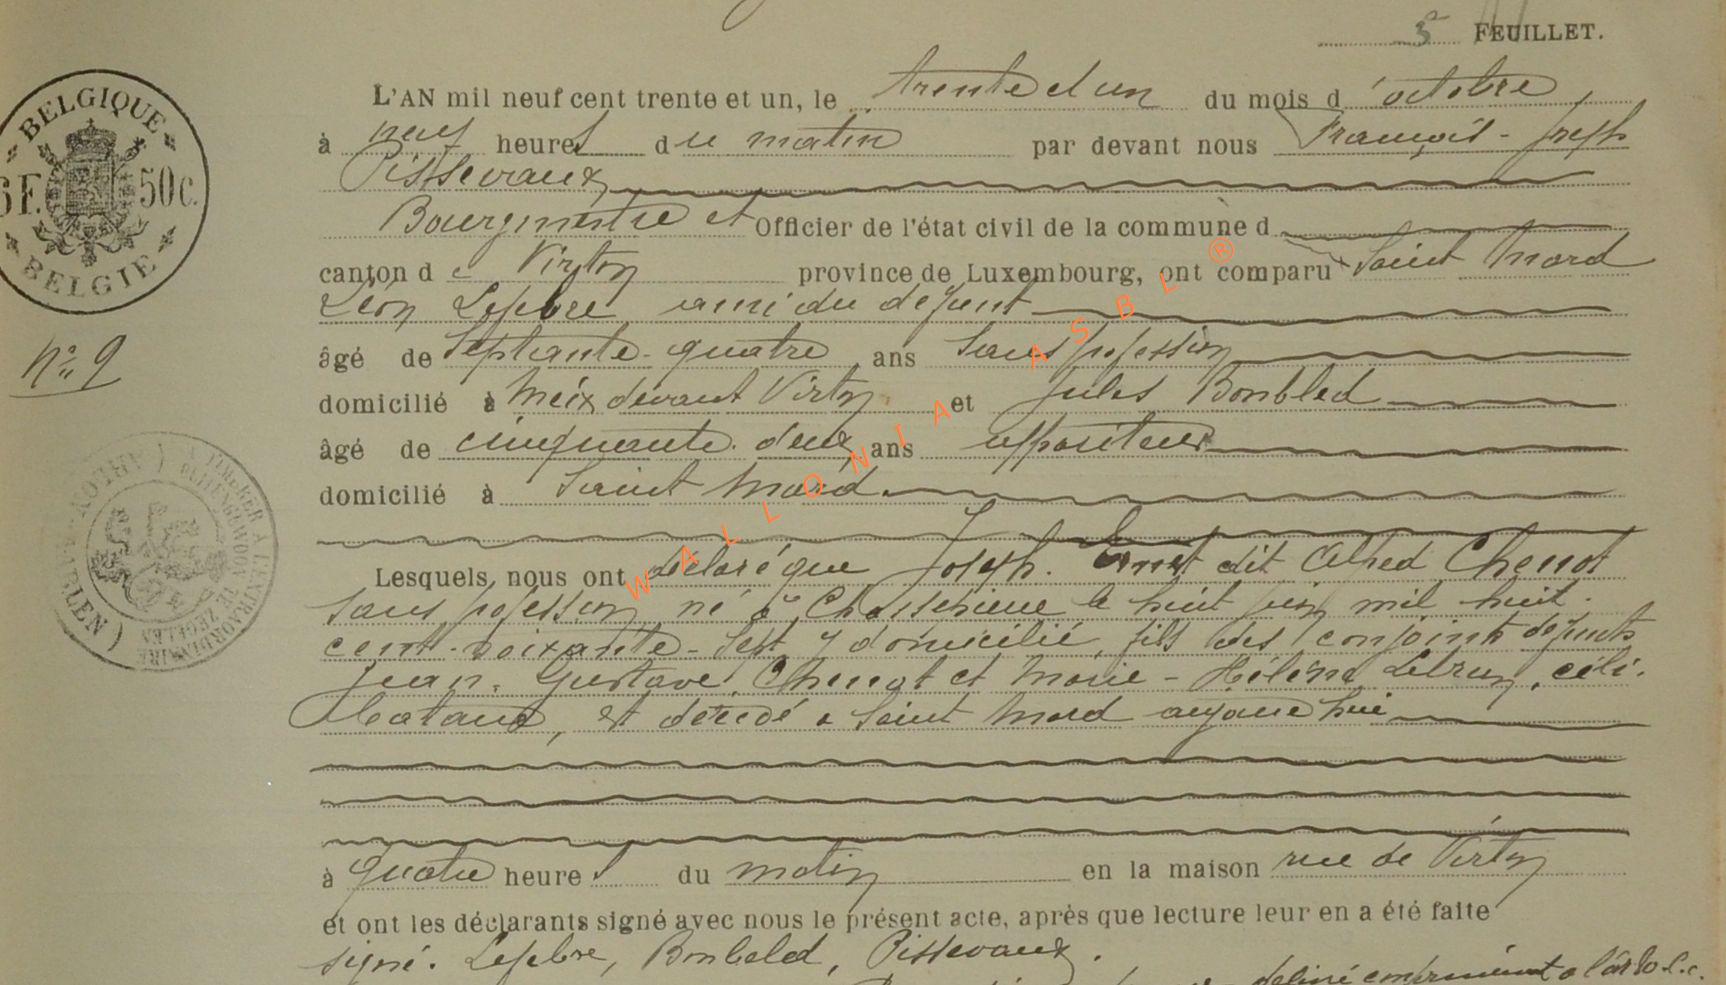 5 FEUILLET.
L'AN mil neuf cent trente et un, le trente et un du mois d'octobre
à neuf heures du matin par devant nous François-Joseph
Pissevaux
Bourgmestre et Officier de l'état civil de la commune d
canton de Virton province de Luxembourg, ont comparu Saint Mard
Léon Lefebre ami du defunt
âgé de septante-quatre ans sans profession
domicilié à Meix devant Virton et Jules Bonbled
âgé de cinquante-deux ans appariteur
domicilié à Saint Mard.
Lesquels, nous ont déclaré que Joseph-Ernest dit Alfred Chenot
sans profession né à le huit juin mil huit-
cent-soixante-sept y domicilié, fils des conjoints defunts
Jean-Gustave Chenot et Marie-Hélène Lebrun, céli-
bataire, est décédé à Saint Mard aujourd'hui
à quatre heures du matin en la maison rue de Virton
et ont les déclarants signé avec nous le présent acte, après que lecture leur en a été faite
signé. Lefebre, Bonbled, Pissevaux.
délivré conformément à l'art 80 c.c.
BELGIQUE
6F. 50c.
BELGIE
N° 9
WALLONIA ASBL ®